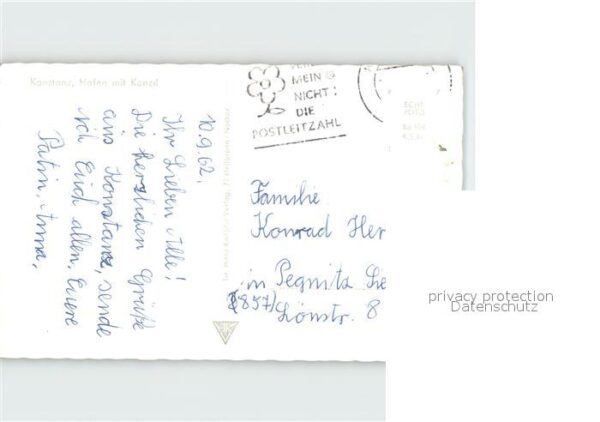 Konstanz, Hafen mit Konzil
10.9.62.
Ihr Lieben Alle!
Die herzlichen Grüße
aus Konstanz, sende
ich Euch allen. Euere
Patin, Anna.
MEIN
NICHT:
DIE
POSTLEITZAHL
ECHT
FOTO
Familie
Konrad Her
in Pegnitz Sie
(857) Lönstr. 8
privacy protection
Datenschutz